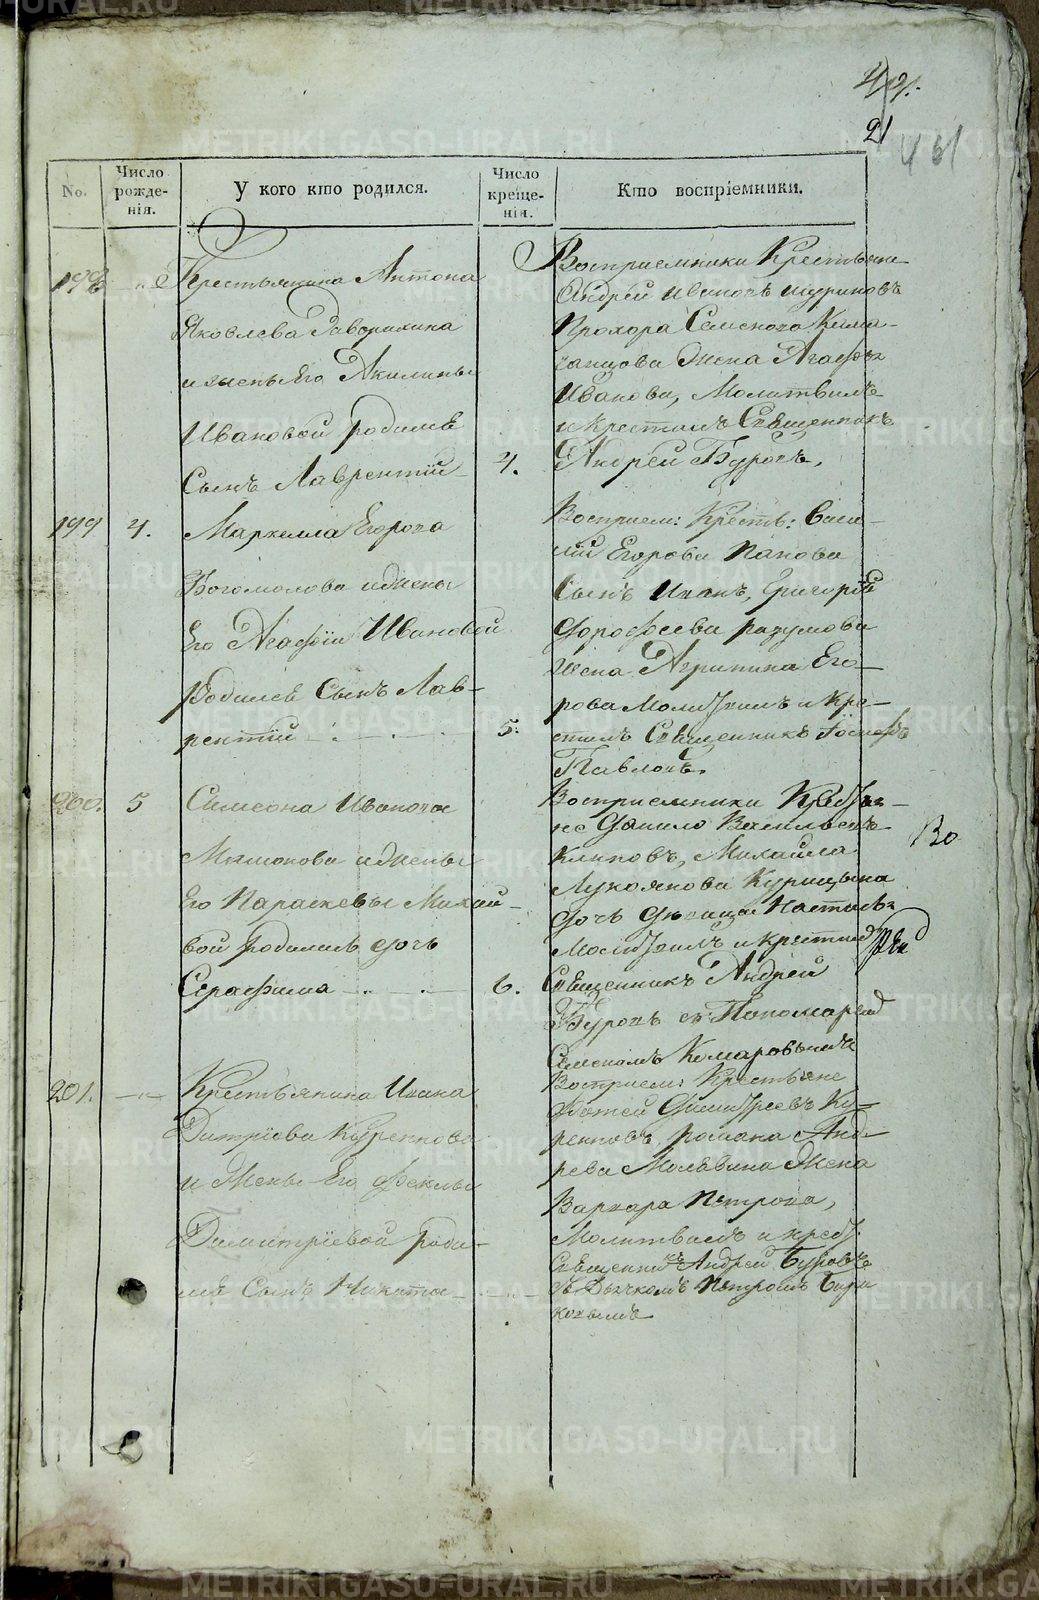 21
461
No.
Число рожде-нія.
У кого кто родился.
Число креще-нія.
Кто воспріемники.
198
Крестьянина Антона
Яковлева
и жены Его Акилины
Ивановой родился
Сынъ Лаврентій
4.
Восприемники Крестьяне
Андрей Ивановъ
Прохора
жена Агафья
Иванова, Молитвилъ
и крестилъ Священникъ
Андрей Буровъ,
199
4.
Маркелла Егорова
Богомолова и жены
Его Агафіи Ивановой
Родился Сынъ Лав-
рентій
5.
Восприем: Кресть: Васи-
лій Егорова Панова
Сынъ Иванъ, Григорія
разумова
жена Агрипина Его-
рова Молитвилъ и кре-
стилъ Священникъ Іосифъ
Павловъ.
200.
5
Симеона Иванова
и жены
Его Параскевы Михай-
вой родилась дочь
Серафима
6.
Восприемники Крестья-
не Данило Васильевъ
Климовъ, Михайла
Лукоянова Курицына
дочь девица Настасья
Молитвилъ и крестилъ
Священникъ Андрей
Буровъ съ Пономаремъ
Комаровымъ
Во
201.
Крестьянина Ивана
Дмитріева
и жены Его Феклы
Димитріевой роди-
лся Сынъ Никита
Восприем: Крестьяне
Фотей Димитреевъ Ку-
романа Анд-
рева жена
Варвара Петрова,
Молитвилъ и крест:
Священникъ Андрей Буровъ
съ Дьячкомъ Петромъ Бири-
ковымъ
METRIKI.GASO-URAL.RU